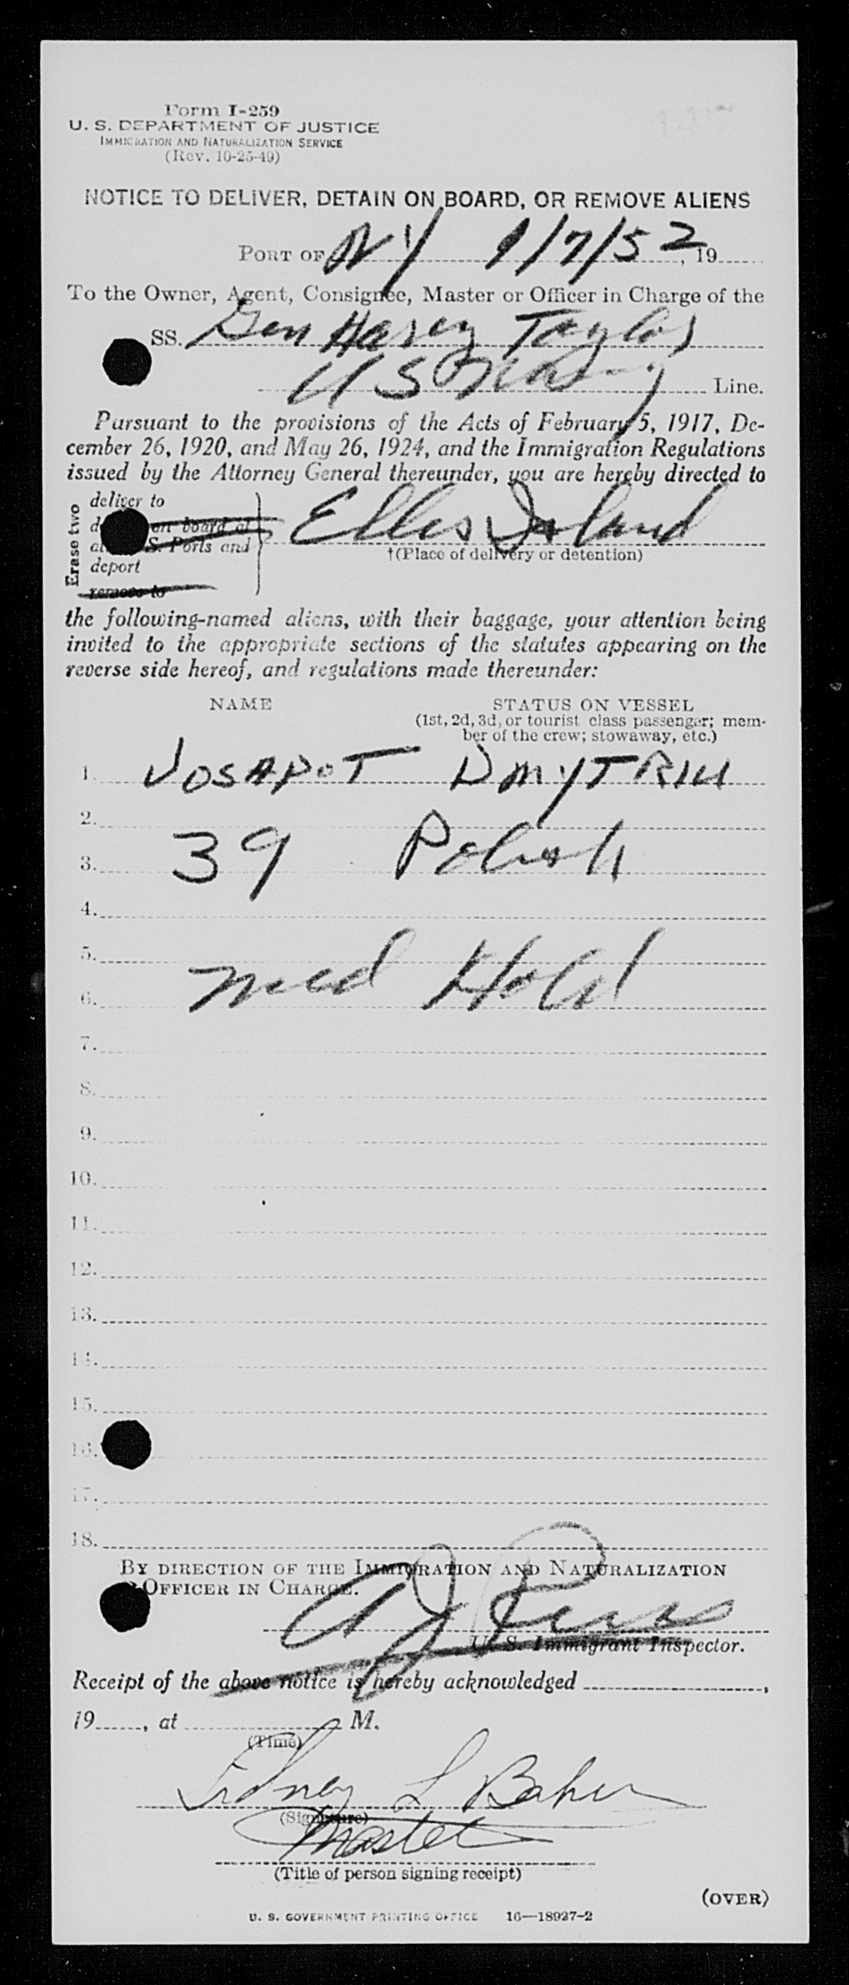 Form I-259
U. S. DEPARTMENT OF JUSTICE
IMMIGRATION AND NATURALIZATION SERVICE
(Rev. 10-25-49)
NOTICE TO DELIVER, DETAIN ON BOARD, OR REMOVE ALIENS
PORT OF NY 1/7/52, 19
To the Owner, Agent, Consignee, Master or Officer in Charge of the
SS. Gen Harry Taylor
US Navy Line.
Pursuant to the provisions of the Acts of February 5, 1917, De-
cember 26, 1920, and May 26, 1924, and the Immigration Regulations
issued by the Attorney General thereunder, you are hereby directed to
Erase two
deliver to
on board at
S. Ports and
deport
remove to
Ellis Island
†(Place of delivery or detention)
the following-named aliens, with their baggage, your attention being
invited to the appropriate sections of the statutes appearing on the
reverse side hereof, and regulations made thereunder:
NAME STATUS ON VESSEL
(1st, 2d, 3d, or tourist class passenger; mem-
ber of the crew; stowaway, etc.)
1. JOSAPOT DMYTRIU
2.
3. 39 Polish
4.
5.
6. Med Hold
7.
8.
9.
10.
11.
12.
13.
14.
15.
16.
17.
18.
BY DIRECTION OF THE IMMIGRATION AND NATURALIZATION
OFFICER IN CHARGE.
U. S. Immigrant Inspector.
Receipt of the above notice is hereby acknowledged ,
19, at M.
(Time)
Sidney L Baker
(Signature)
Master
(Title of person signing receipt)
(OVER)
U. S. GOVERNMENT PRINTING OFFICE 16—18927-2